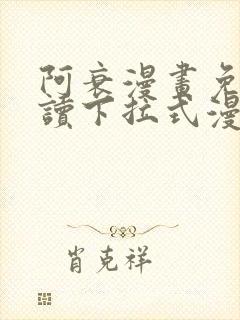 阿衰漫畫免
讀下拉式漫
肖克祥